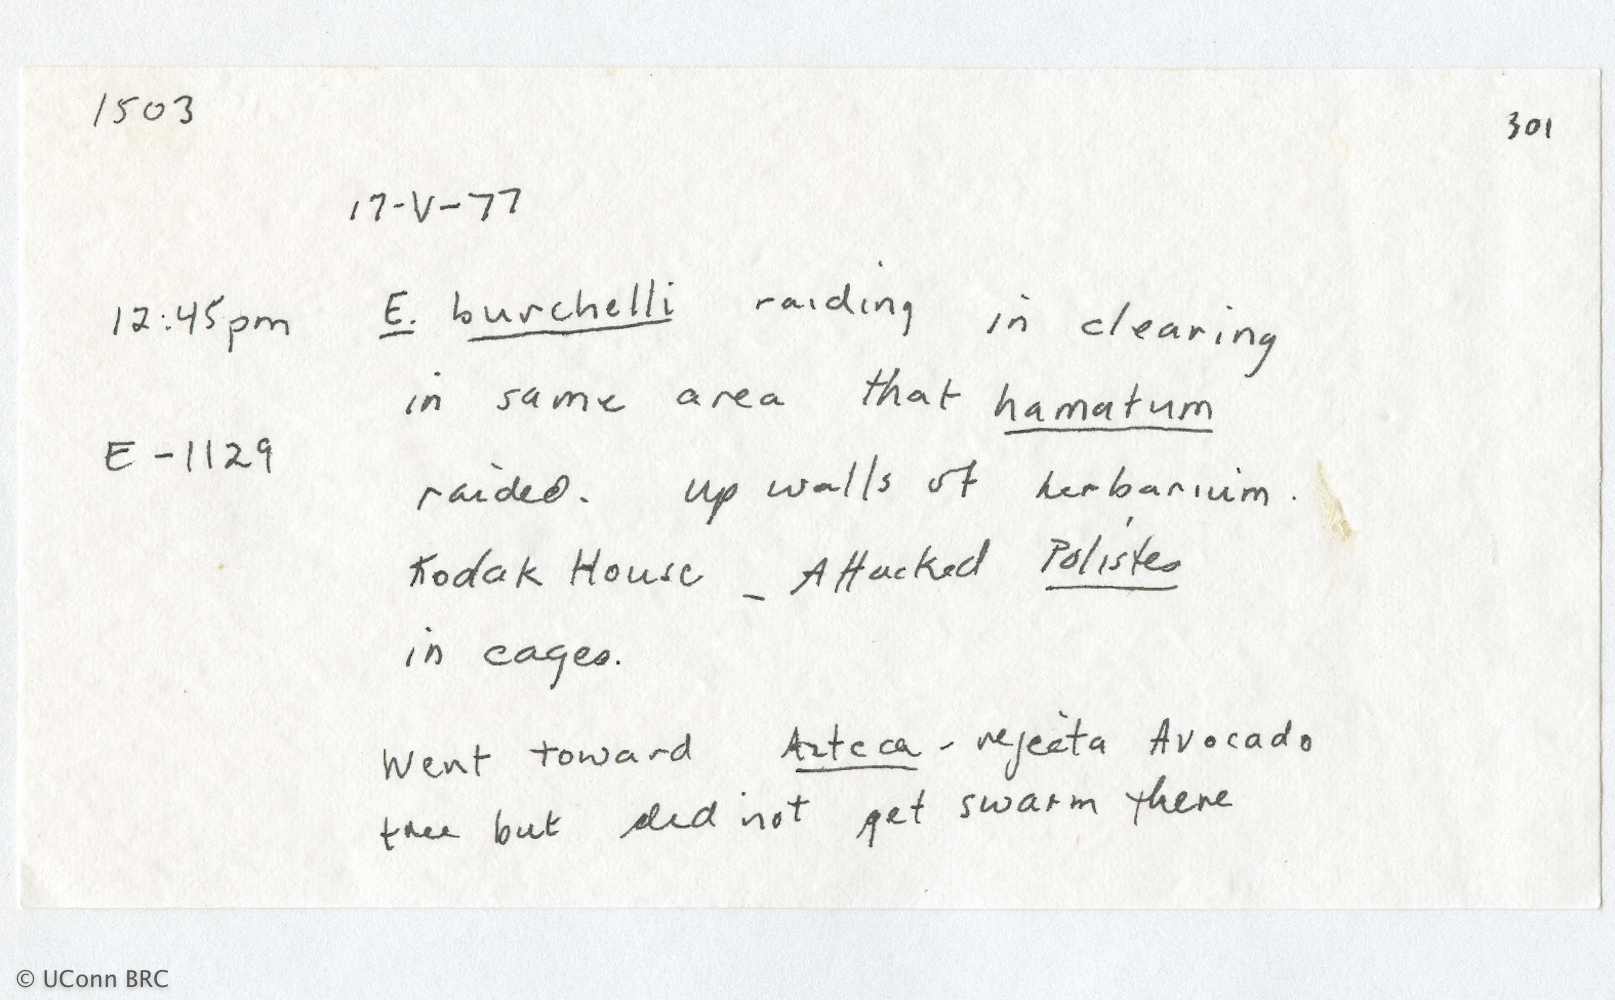 1503
301
17-V-77
12:45pm E. burchelli raiding in clearing
in same area that hamatum
E-1129
raided. up walls of herbarium.
Kodak House - Attacked Polistes
in cages.
Went toward Azteca - rejecta Avocado
tree but did not get swarm there
© UConn BRC